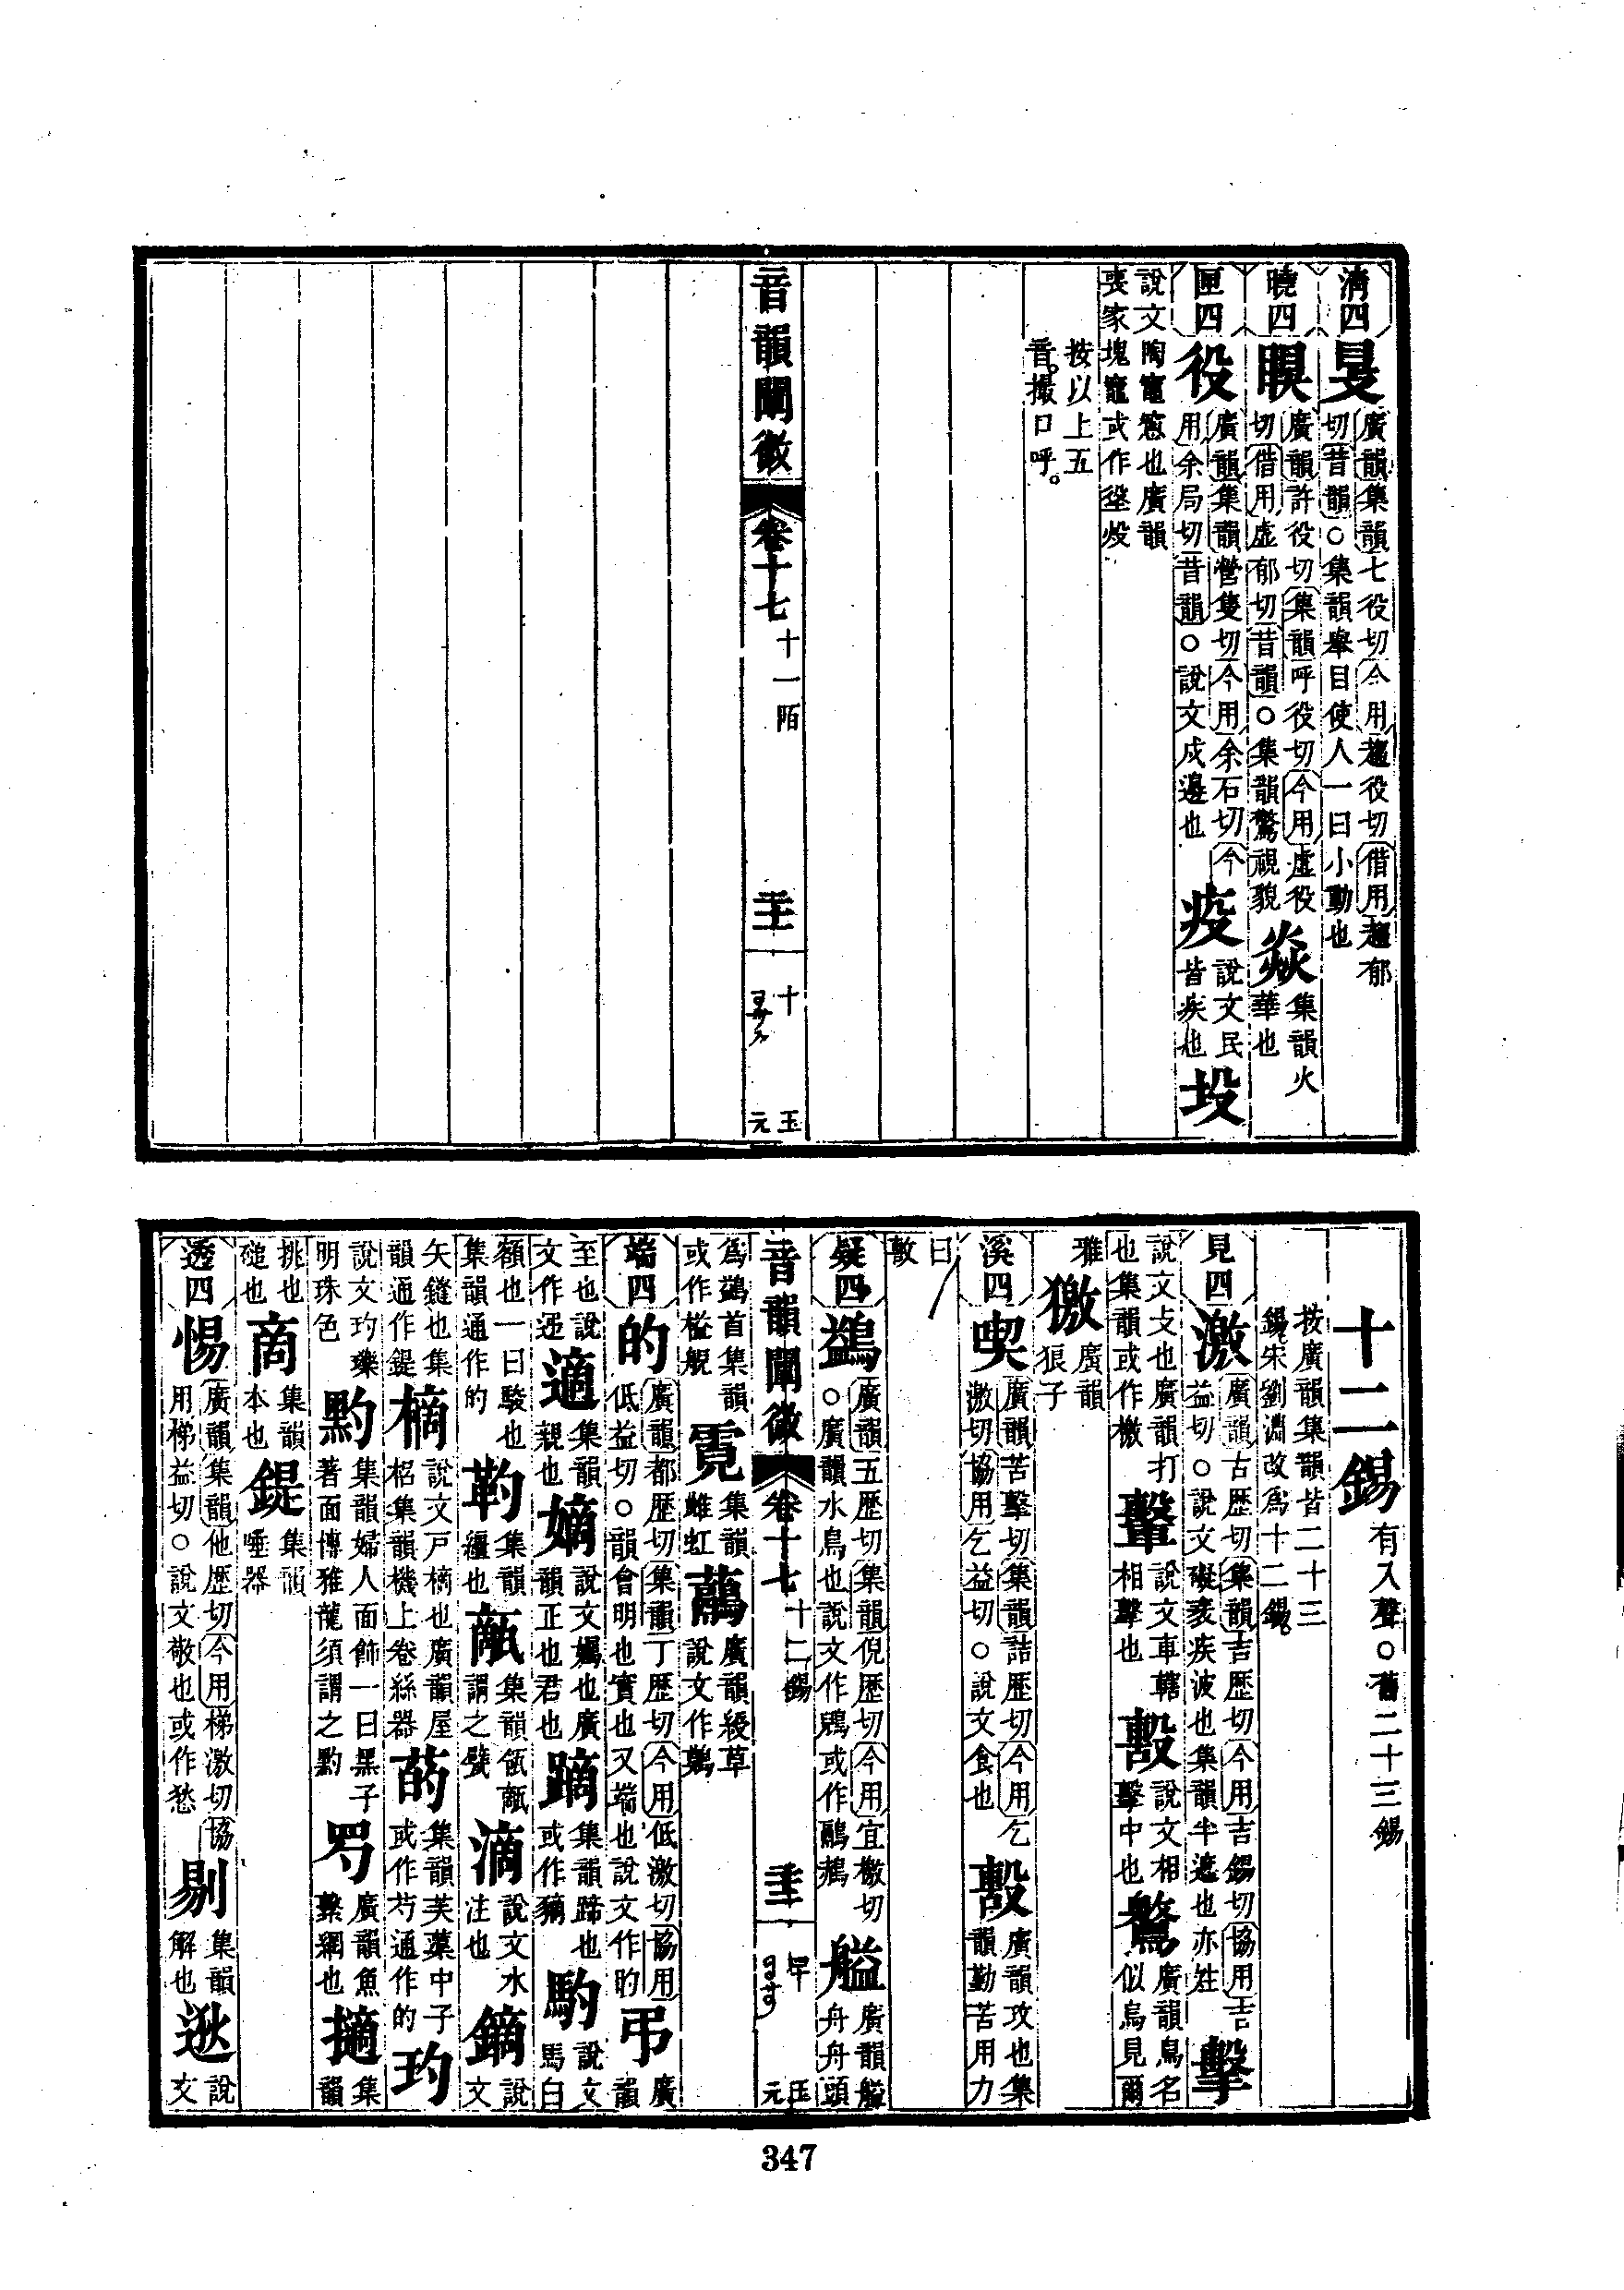 清四 旻 廣韻集韻七役切今用趨役切借用趨郁切昔韻○集韻舉目使人一曰小動也
曉四 瞁 廣韻許役切集韻呼役切今用虛役切借用虛郁切昔韻○集韻驚視貌 焱 集韻火華也
匣四 役 廣韻集韻營隻切今用余石切今用余局切昔韻○說文戍邊也 疫 說文民皆疾也 垼
說文陶竈窻也廣韻喪家塊竈或作坄炈
按以上五音撮口呼
音韻闡微 卷十七 十一陌
十二錫 有入聲○舊二十三錫
按廣韻集韻皆二十三錫宋劉淵改爲十二錫
見四 激 廣韻古歷切集韻吉歷切今用吉錫切協用吉益切○說文礙衺疾波也集韻半遮也亦姓 擊
說文攴也廣韻打也集韻或作檄 轚 說文車轄相擊也 毄 說文相擊中也 鷔 廣韻鳥名似烏見爾
雅 獥 廣韻狼子
溪四 喫 廣韻苦擊切集韻詰歷切今用乞激切協用乞益切○說文食也 毄 廣韻攻也集韻勤苦用力
曰
疑四 鷁 廣韻五歷切集韻倪歷切今用宜檄切○廣韻水鳥也說文作鶂或作鷊鶃 艗 廣韻艗舟舟頭
音韻闡微 卷十七 十二錫
爲鷁首集韻或作䑄艗 霓 集韻雌虹 虉 廣韻綬草說文作鷊
端四 的 廣韻都歷切集韻丁歷切今用低激切協用低益切○韻會明也實也又端也說文作旳 弔 廣韻
至也說文作迅 適 集韻親也 嫡 說文孎也廣韻正也君也 蹢 集韻蹄也或作豴 馰 說文馬白
額也一曰駿也集韻通作的 靮 集韻韁也 甋 集韻瓴甋謂之甓 滴 說文水注也 鏑 說文
矢鏠也集韻通作鍉 樀 說文戶樀也廣韻屋梠集韻機上卷絲器 菂 集韻芙蕖中子或作芍通作的 玓
說文玓瓅明珠色 䵠 集韻婦人面飾一曰黑子著面博雅龍須謂之䵠 芍 廣韻魚繫網也 擿 集韻
挑也磓也 啇 集韻本也 鍉 集韻唾器
透四 惕 廣韻集韻他歷切今用梯激切協用梯益切○說文敬也或作愁 剔 集韻解也 逖 說文
347